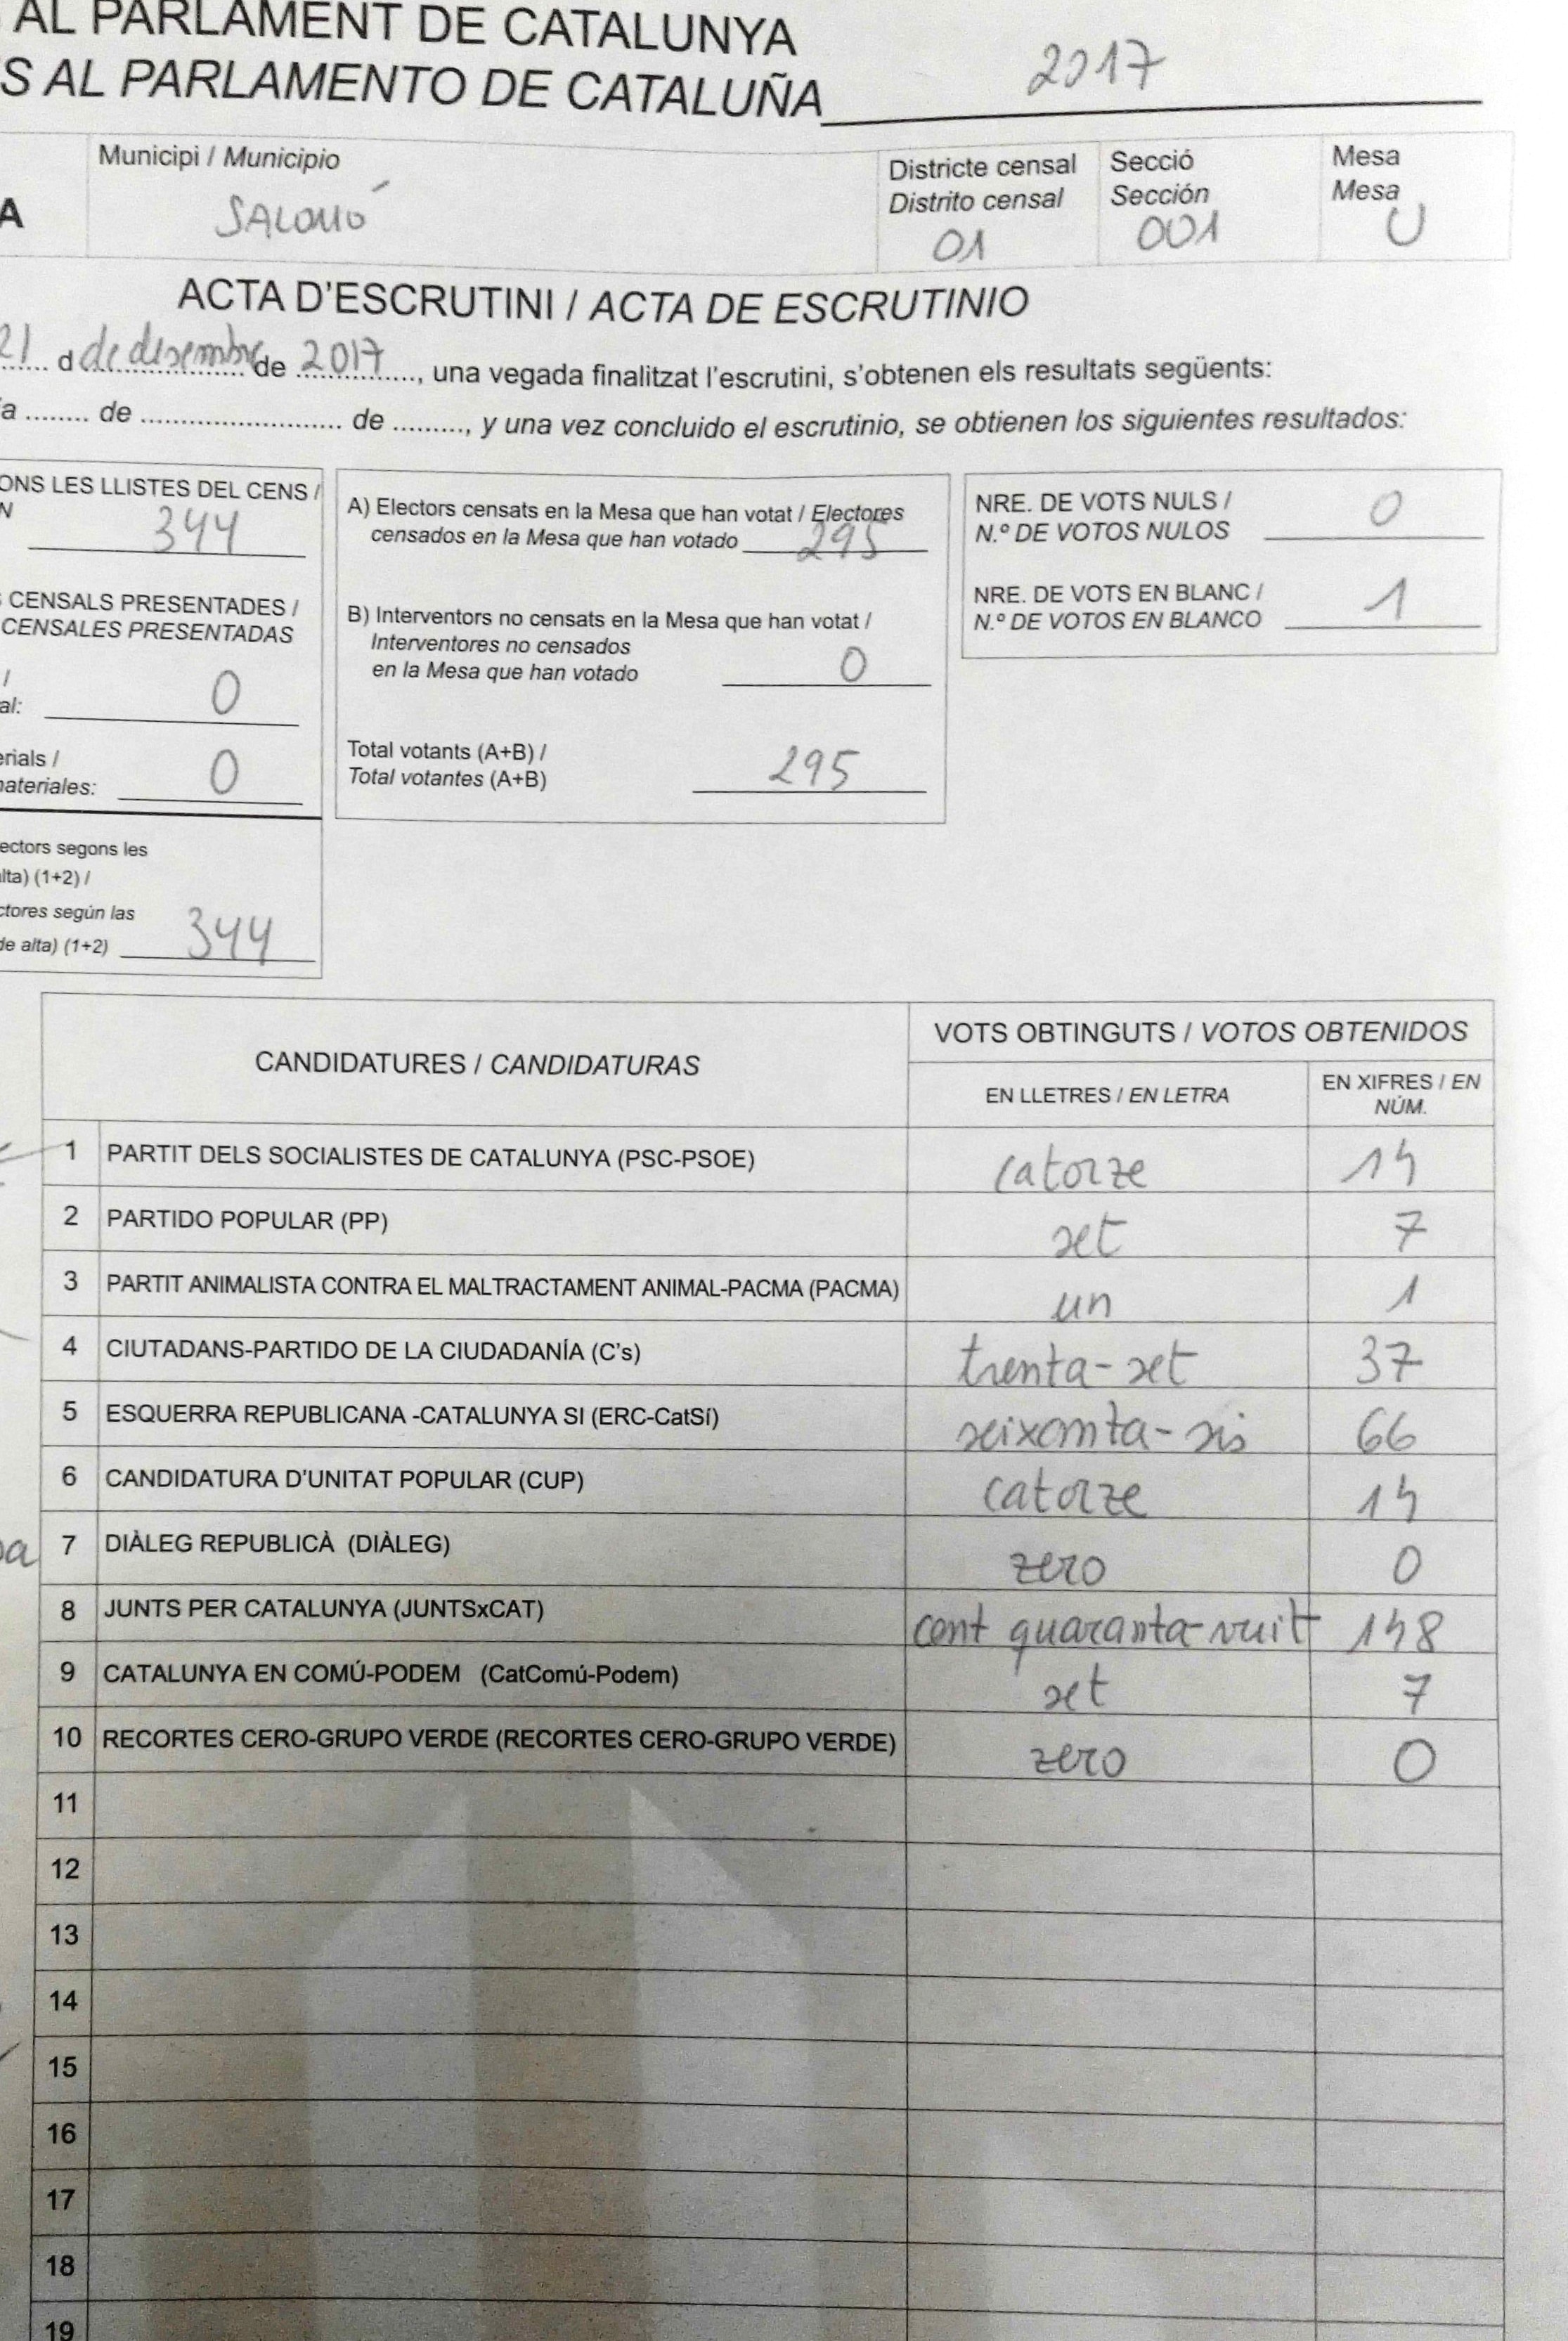 AL PARLAMENT DE CATALUNYA
S AL PARLAMENTO DE CATALUÑA 2017
Municipi / Municipio
SALOMÓ
A
Districte censal
Distrito censal
01
Secció
Sección
001
Mesa
Mesa
U
ACTA D'ESCRUTINI / ACTA DE ESCRUTINIO
21 d de desembre de 2017, una vegada finalitzat l'escrutini, s'obtenen els resultats següents:
ía ........ de ......................... de ........., y una vez concluido el escrutinio, se obtienen los siguientes resultados:
ONS LES LLISTES DEL CENS /
N 344
CENSALS PRESENTADES /
CENSALES PRESENTADAS
/
al: 0
erials /
nateriales: 0
ectors segons les
alta) (1+2) /
ctores según las
de alta) (1+2) 344
A) Electors censats en la Mesa que han votat / Electores
censados en la Mesa que han votado 295
B) Interventors no censats en la Mesa que han votat /
Interventores no censados
en la Mesa que han votado 0
Total votants (A+B) /
Total votantes (A+B) 295
NRE. DE VOTS NULS /
N.º DE VOTOS NULOS 0
NRE. DE VOTS EN BLANC /
N.º DE VOTOS EN BLANCO 1
CANDIDATURES / CANDIDATURAS
VOTS OBTINGUTS / VOTOS OBTENIDOS
EN LLETRES / EN LETRA
EN XIFRES / EN
NÚM.
1 PARTIT DELS SOCIALISTES DE CATALUNYA (PSC-PSOE) catorze 14
2 PARTIDO POPULAR (PP) set 7
3 PARTIT ANIMALISTA CONTRA EL MALTRACTAMENT ANIMAL-PACMA (PACMA) un 1
4 CIUTADANS-PARTIDO DE LA CIUDADANÍA (C's) trenta-set 37
5 ESQUERRA REPUBLICANA -CATALUNYA SI (ERC-CatSí) seixanta-sis 66
6 CANDIDATURA D'UNITAT POPULAR (CUP) catorze 14
7 DIÀLEG REPUBLICÀ (DIÀLEG) zero 0
8 JUNTS PER CATALUNYA (JUNTSxCAT) cent quaranta-vuit 148
9 CATALUNYA EN COMÚ-PODEM (CatComú-Podem) set 7
10 RECORTES CERO-GRUPO VERDE (RECORTES CERO-GRUPO VERDE) zero 0
11
12
13
14
15
16
17
18
19